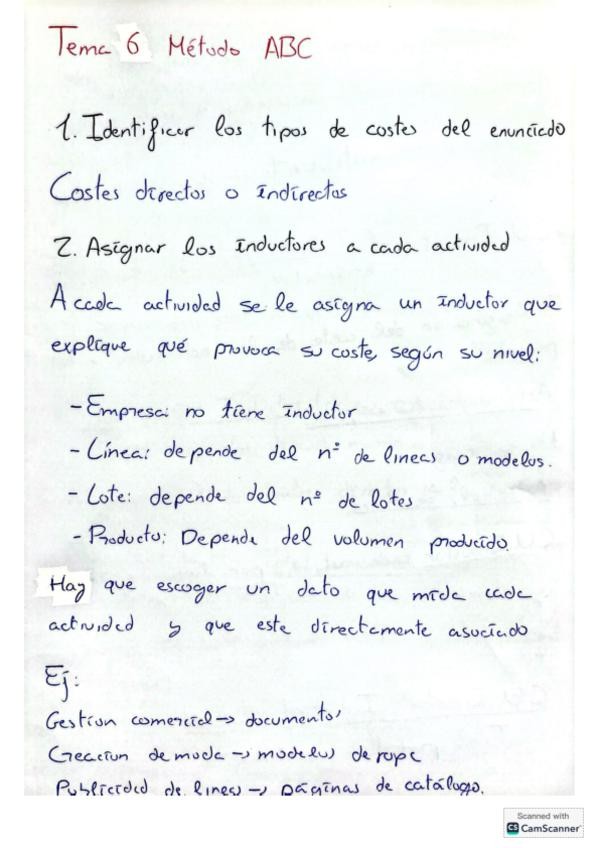 Tema 6 Método ABC
1. Identificar los tipos de costes del enunciado
Costes directos o indirectos
2. Asignar los inductores a cada actividad
A cada actividad se le asigna un inductor que
explique qué provoca su coste, según su nivel:
- Empresa: no tiene inductor
- Línea: depende del nº de lineas o modelos.
- Lote: depende del nº de lotes
- Producto: Depende del volumen producido.
Hay que escoger un dato que mida cada
actividad y que este directamente asociado
Ej:
Gestion comercial → documentos
Creacion de moda → modelos de ropa
Publicidad de lineas → páginas de catálogo.
Scanned with
CS CamScanner